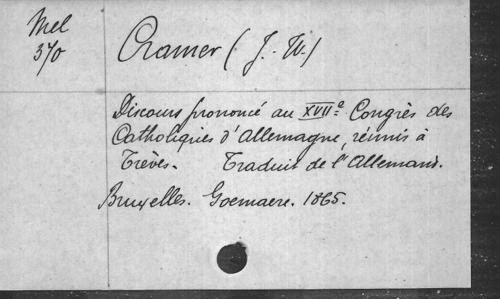 Mel
370
Cramer (J. W.)
Discours prononcé au XVIIe Congrès des
Catholiques d'Allemagne, réunis à
Trèves. Traduit de l'Allemand.
Bruxelles. Goemaere. 1865.